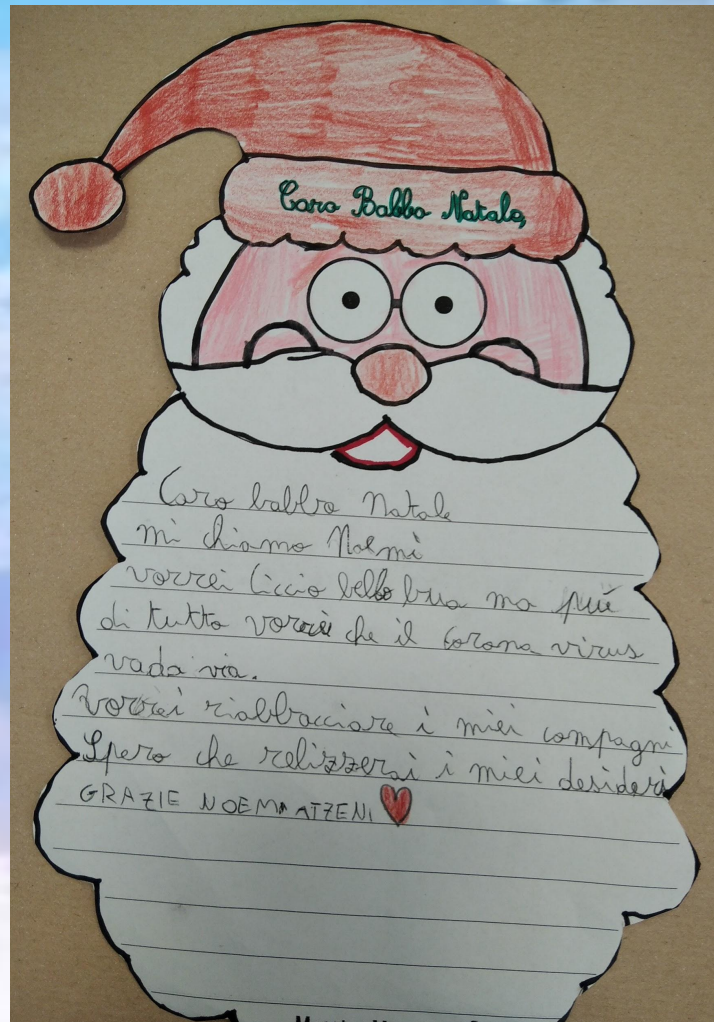 Caro Babbo Natale,
Caro babbo Natale
mi chiamo Noemi
vorrei Ciccio bello bua ma più
di tutto vorrei che il corona virus
vada via.
Vorrei riabbracciare i miei compagni
Spero che relizzerai i miei desideri
GRAZIE NOEMI ATZENI